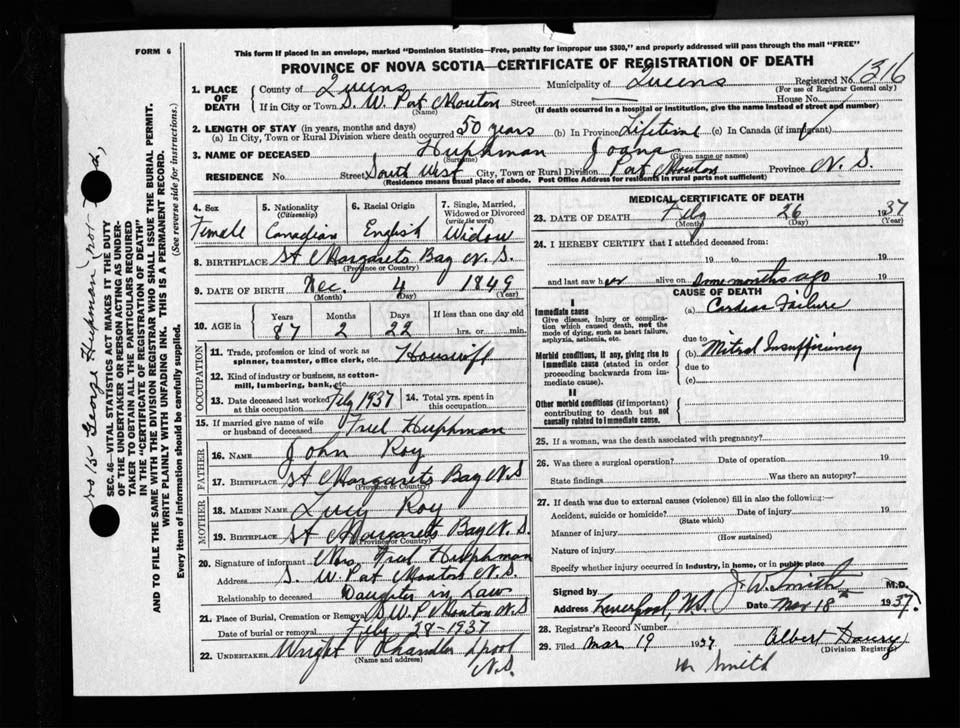 FORM 6
This form if placed in an envelope, marked "Dominion Statistics—Free, penalty for improper use $300," and properly addressed will pass through the mail "FREE"
PROVINCE OF NOVA SCOTIA—CERTIFICATE OF REGISTRATION OF DEATH
1. PLACE OF DEATH County of Queens Municipality of Queens Registered No. 1316
(For use of Registrar General only)
If in City or Town S. W. Port Mouton Street — House No.
(Name) (If death occurred in a hospital or institution, give the name instead of street and number)
2. LENGTH OF STAY (in years, months and days)
(a) In City, Town or Rural Division where death occurred 50 years (b) In Province Lifetime (c) In Canada (if immigrant)
3. NAME OF DECEASED Huphman Joana
(Surname) (Given name or names)
RESIDENCE No. Street South West City, Town or Rural Division Port Mouton Province N. S.
(Residence means usual place of abode. Post Office Address for residents in rural parts not sufficient)
4. Sex Female
5. Nationality (Citizenship) Canadian
6. Racial Origin English
7. Single, Married, Widowed or Divorced (write the word) Widow
8. BIRTHPLACE St Margarets Bay N. S.
(Province or Country)
9. DATE OF BIRTH Dec. 4 1849
(Month) (Day) (Year)
10. AGE in Years Months Days If less than one day old
87 2 22 hrs. or min.
OCCUPATION
11. Trade, profession or kind of work as spinner, teamster, office clerk, etc. Houswife
12. Kind of industry or business, as cotton-mill, lumbering, bank, etc.
13. Date deceased last worked at this occupation Feby 1937
14. Total yrs. spent in this occupation
15. If married give name of wife or husband of deceased Huphman
FATHER
16. Name John Roy
17. Birthplace St Margarets Bay N S
(Province or Country)
MOTHER
18. Maiden Name Lucy Roy
19. Birthplace St Margarets Bay N. S.
(Province or Country)
20. Signature of informant Mrs Huphman
Address S. W. Port Mouton N. S.
Relationship to deceased Daughter in Law
21. Place of Burial, Cremation or Removal S W P Mouton N S
Date of burial or removal Feby 28 - 1937
22. UNDERTAKER Wright Chandler Lpool N. S.
(Name and address)
MEDICAL CERTIFICATE OF DEATH
23. DATE OF DEATH Feby 26 1937
(Month) (Day) (Year)
24. I HEREBY CERTIFY that I attended deceased from:
19 to 19
and last saw her alive on some months ago 19
CAUSE OF DEATH
I
Immediate cause
Give disease, injury or complication which caused death, not the mode of dying, such as heart failure, asphyxia, asthenia, etc.
(a) Cardiac Failure
due to
Morbid conditions, if any, giving rise to immediate cause (stated in order proceeding backwards from immediate cause).
(b) Mitral Insufficiency
due to
(c)
II
Other morbid conditions (if important) contributing to death but not causally related to immediate cause.
25. If a woman, was the death associated with pregnancy?
26. Was there a surgical operation? Date of operation 19
State findings Was there an autopsy?
27. If death was due to external causes (violence) fill in also the following:—
Accident, suicide or homicide? Date of injury 19
(State which)
Manner of injury
(How sustained)
Nature of injury
Specify whether injury occurred in industry, in home, or in public place
Signed by J. W. Smith M.D.
Address Liverpool, N.S. Date Mar 18th 1937.
28. Registrar's Record Number
29. Filed Mar 19 1937
(Division Registrar)
Smith
SEC. 46—VITAL STATISTICS ACT MAKES IT THE DUTY OF THE UNDERTAKER OR PERSON ACTING AS UNDERTAKER TO OBTAIN ALL THE PARTICULARS REQUIRED IN THE "CERTIFICATE OF REGISTRATION OF DEATH" AND TO FILE THE SAME WITH THE DIVISION REGISTRAR WHO SHALL ISSUE THE BURIAL PERMIT.
WRITE PLAINLY WITH UNFADING INK. THIS IS A PERMANENT RECORD.
Every item of information should be carefully supplied. (See reverse side for instructions.)
No 15 George Hupman (not